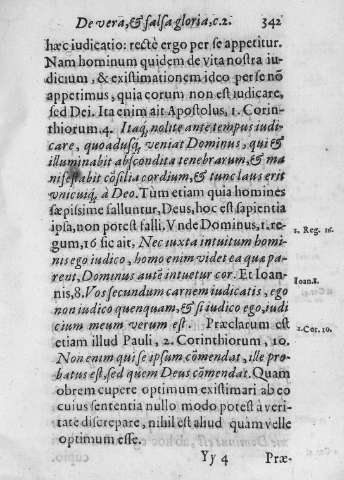 De vera, & falsa gloria, c.2. 342
hæc iudicatio: rectè ergo per se appetitur.
Nam hominum quidem de vita nostra iu-
dicium, & existimationem ideo per se nō
appetimus, quia eorum non est iudicare,
sed Dei. Ita enim ait Apostolus, 1. Corin-
thiorum. 4. Itaq; nolite ante tempus iudi-
care, quoadusq; veniat Dominus, qui &
illuminabit abscondita tenebrarum, & ma
nifestabit cōsilia cordium, & tunc laus erit
vnicuiq; à Deo. Tùm etiam quia homines
sæpissime falluntur, Deus, hoc est sapientia
ipsa, non potest falli. Vnde Dominus, 1. re-
gum, 16 sic ait, Nec iuxta intuitum homi-
nis ego iudico, homo enim videt ea quæ pa-
rent, Dominus autē intuetur cor. Et Ioan-
nis, 8. Vos secundum carnem iudicatis, ego
non iudico quenquam, & si iudico ego, iudi
cium meum verum est. Præclarum est
etiam illud Pauli, 2. Corinthiorum, 10.
Non enim qui se ipsum cōmendat, ille pro-
batus est, sed quem Deus cōmendat. Quam
obrem cupere optimum existimari ab eo
cuius sententia nullo modo potest à veri-
tate discrepare, nihil est aliud quam velle
optimum esse.
Yy 4 Præ-
1. Reg. 16.
Ioan. 8.
2. Cor. 10.